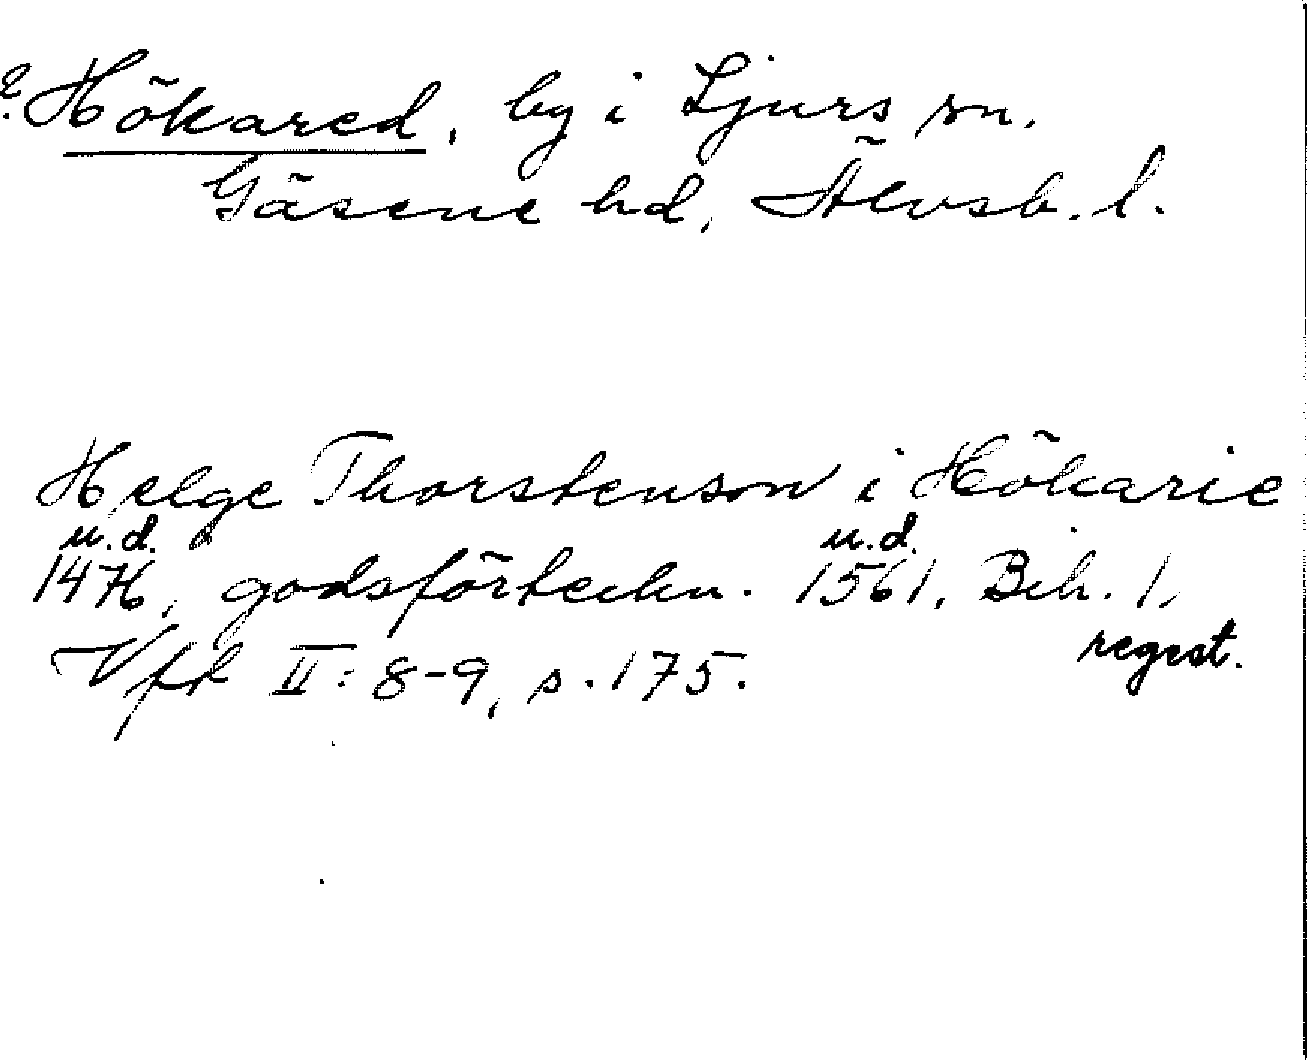 ? Hökared, by i Ljurs sn.
Gäsene hd, Älvsb. l.
Helge Thorstenson i Hökarie
u.d. u.d.
1476, godsförteckn. 1561, Bih. 1,
regest.
Vfk II: 8-9, s. 175.